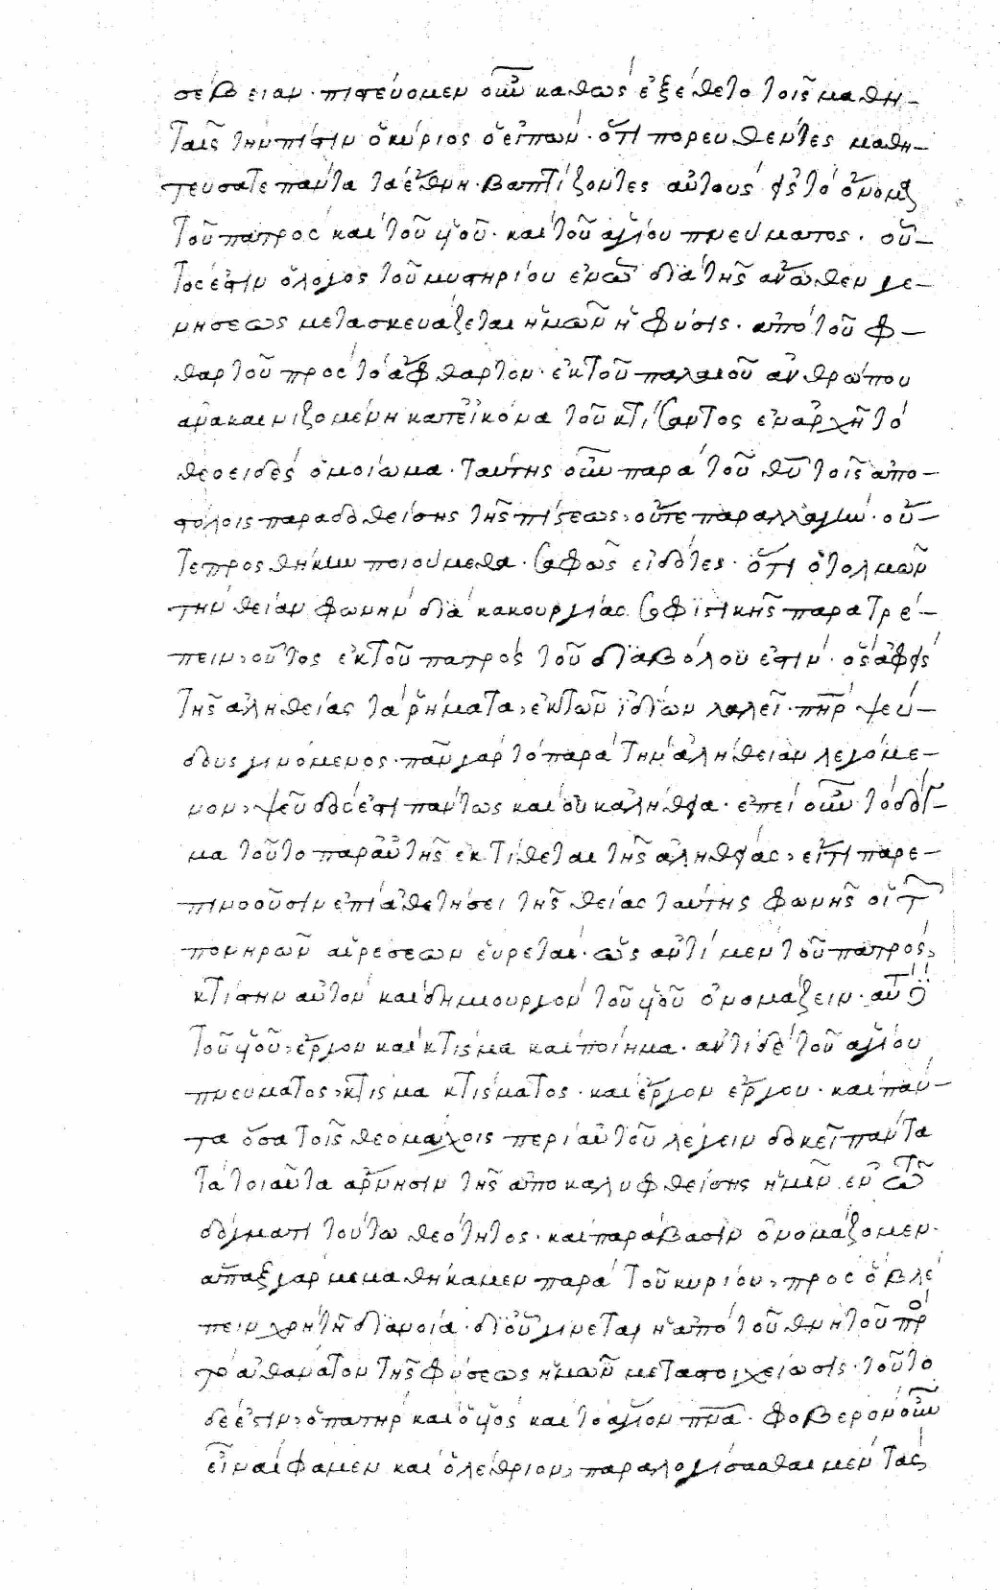 σέβειαν· πιστεύομεν οὖν καθὼς ἐξέθετο τοῖς μαθη-
ταῖς τὴν πίστιν ὁ κύριος ὁ εἰπών· ὅτι πορευθέντες μαθη-
τεύσατε πάντα τὰ ἔθνη· βαπτίζοντες αὐτοὺς εἰς τὸ ὄνομα
τοῦ πατρὸς καὶ τοῦ υἱοῦ· καὶ τοῦ ἁγίου πνεύματος· οὗ-
τός ἐστιν ὁ λόγος τοῦ μυστηρίου ἐν ᾧ διὰ τῆς ἄνωθεν γε-
νήσεως μετασκευάζεται ἡμῶν ἡ φύσις· ἀπὸ τοῦ φ-
θαρτοῦ πρὸς τὸ ἄφθαρτον· ἐκ τοῦ παλαιοῦ ἀνθρώπου
ἀνακαινιζομένη κατ' εἰκόνα τοῦ κτίσαντος ἐν ἀρχῇ τὸ
θεοειδὲς ὁμοίωμα· ταύτης οὖν παρὰ τοῦ θυ τοῖς ἀπο-
στόλοις παραδοθείσης τῆς πίστεως, οὔτε παραλλαγὴν· οὔ-
τε προσθήκην ποιούμεθα· σαφῶς εἰδότες· ὅτι ὁ τολμῶν
τὴν θείαν φωνὴν διὰ κακουργίας σοφιστικῆς παρατρέ-
πειν, οὗτος ἐκ τοῦ πατρὸς τοῦ διαβόλου ἐστίν· ὃς ἀφεὶς
τῆς ἀληθείας τὰ ῥήματα, ἐκ τῶν ἰδίων λαλεῖ· πηρ ψεύ-
δους γινόμενος· πᾶν γὰρ τὸ παρὰ τὴν ἀλήθειαν λεγόμε-
νον, ψεῦδός ἐστι πάντως καὶ οὐκ ἀλήθεια· ἐπεὶ οὖν τὸ δόγ-
μα τοῦτο παρ' αὐτῆς ἐκτίθεται τῆς ἀληθείας, εἴ τι παρε-
πινοοῦσιν ἐπὶ ἀθετήσει τῆς θείας ταύτης φωνῆς οἱ τ
πονηρῶν αἱρέσεων εὑρεταί· ὡς ἀντὶ μὲν τοῦ πατρὸς,
κτίστην αὐτὸν καὶ δημιουργὸν τοῦ υἱοῦ ὀνομάζειν· ἀντὶ
τοῦ υἱοῦ, ἔργον καὶ κτίσμα καὶ ποίημα· ἀντὶ δὲ τοῦ ἁγίου
πνεύματος, κτίσμα κτίσματος· καὶ ἔργον ἔργου· καὶ πάν-
τα ὅσα τοῖς θεομάχοις περὶ αὐτοῦ λέγειν δοκεῖ πάντα
τὰ τοιαῦτα ἄρνησιν τῆς ἀποκαλυφθείσης ἡμῖν ἐν τῷ
δόγματι τούτω θεότητος· καὶ παράβασιν ὀνομάζομεν·
ἅπαξ γὰρ μεμαθήκαμεν παρὰ τοῦ κυρίου, πρὸς ὃ βλέ
πειν χρὴ τῇ διανοία· δι' οὗ γίνεται ἡ ἀπὸ τοῦ θνητοῦ πρὸ
τὸ ἀθάνατον τῆς φύσεως ἡμῶν μεταστοιχείωσις· τοῦτο
δέ ἐστιν, ὁ πατὴρ καὶ ὁ υἱὸς καὶ τὸ ἅγιον πνα· φοβερὸν οὖν
εἶναί φαμεν καὶ ὀλέθριον, παραλογίσασθαι μὲν τὰς